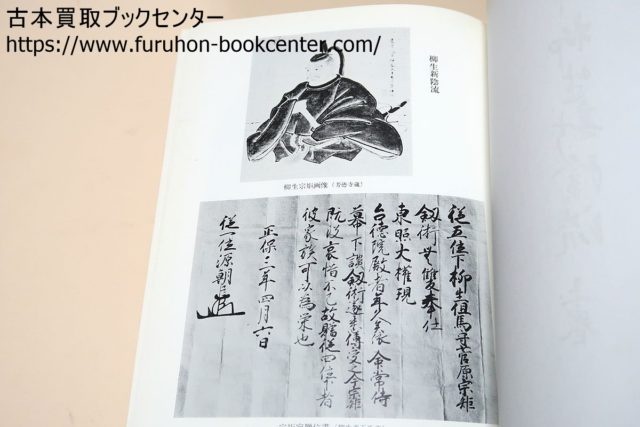 古本買取ブックセンター
https://www.furuhon-bookcenter.com/
柳生新陰流
柳生宗矩画像（芳徳寺蔵）
従五位下柳生但馬守菅原宗矩
剱術無雙奉仕
東照大権現
台徳院殿者年久矣余常侍
幕下講剱術遂悉傳受之今雖
既没哀惜不已故贈従四位下者
彼家族可以為栄也
正保三年四月六日
従一位源朝臣